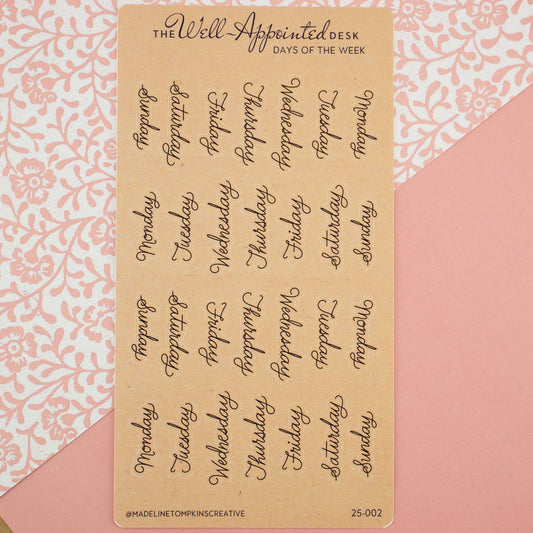 THE Well-Appointed DESK
DAYS OF THE WEEK
Sunday Saturday Friday Thursday Wednesday Tuesday Monday
Monday Tuesday Wednesday Thursday Friday Saturday Sunday
Sunday Saturday Friday Thursday Wednesday Tuesday Monday
Monday Tuesday Wednesday Thursday Friday Saturday Sunday
@MADELINETOMPKINSCREATIVE 25-002